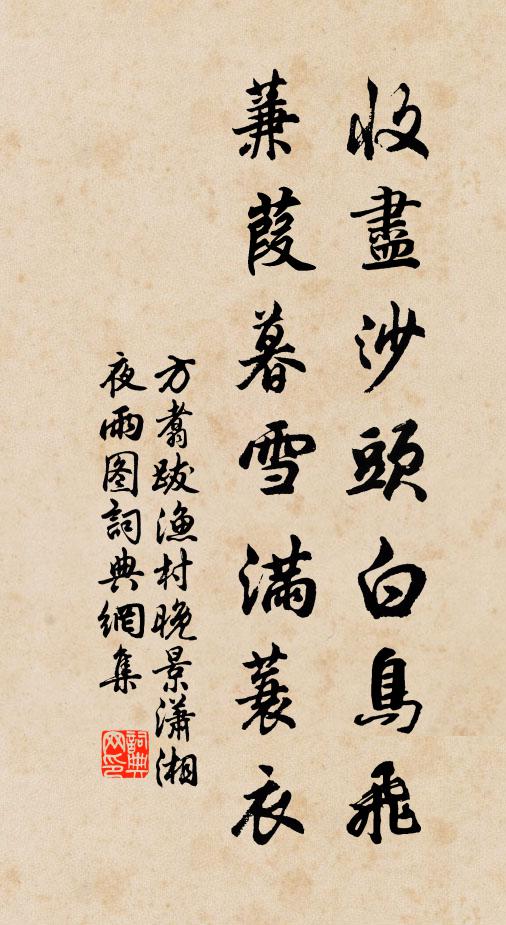 收盡沙頭白鳥飛
蒹葭暮雪滿蓑衣
方翥跋漁村晚景瀟湘
夜雨图詞典網集
詞典网印